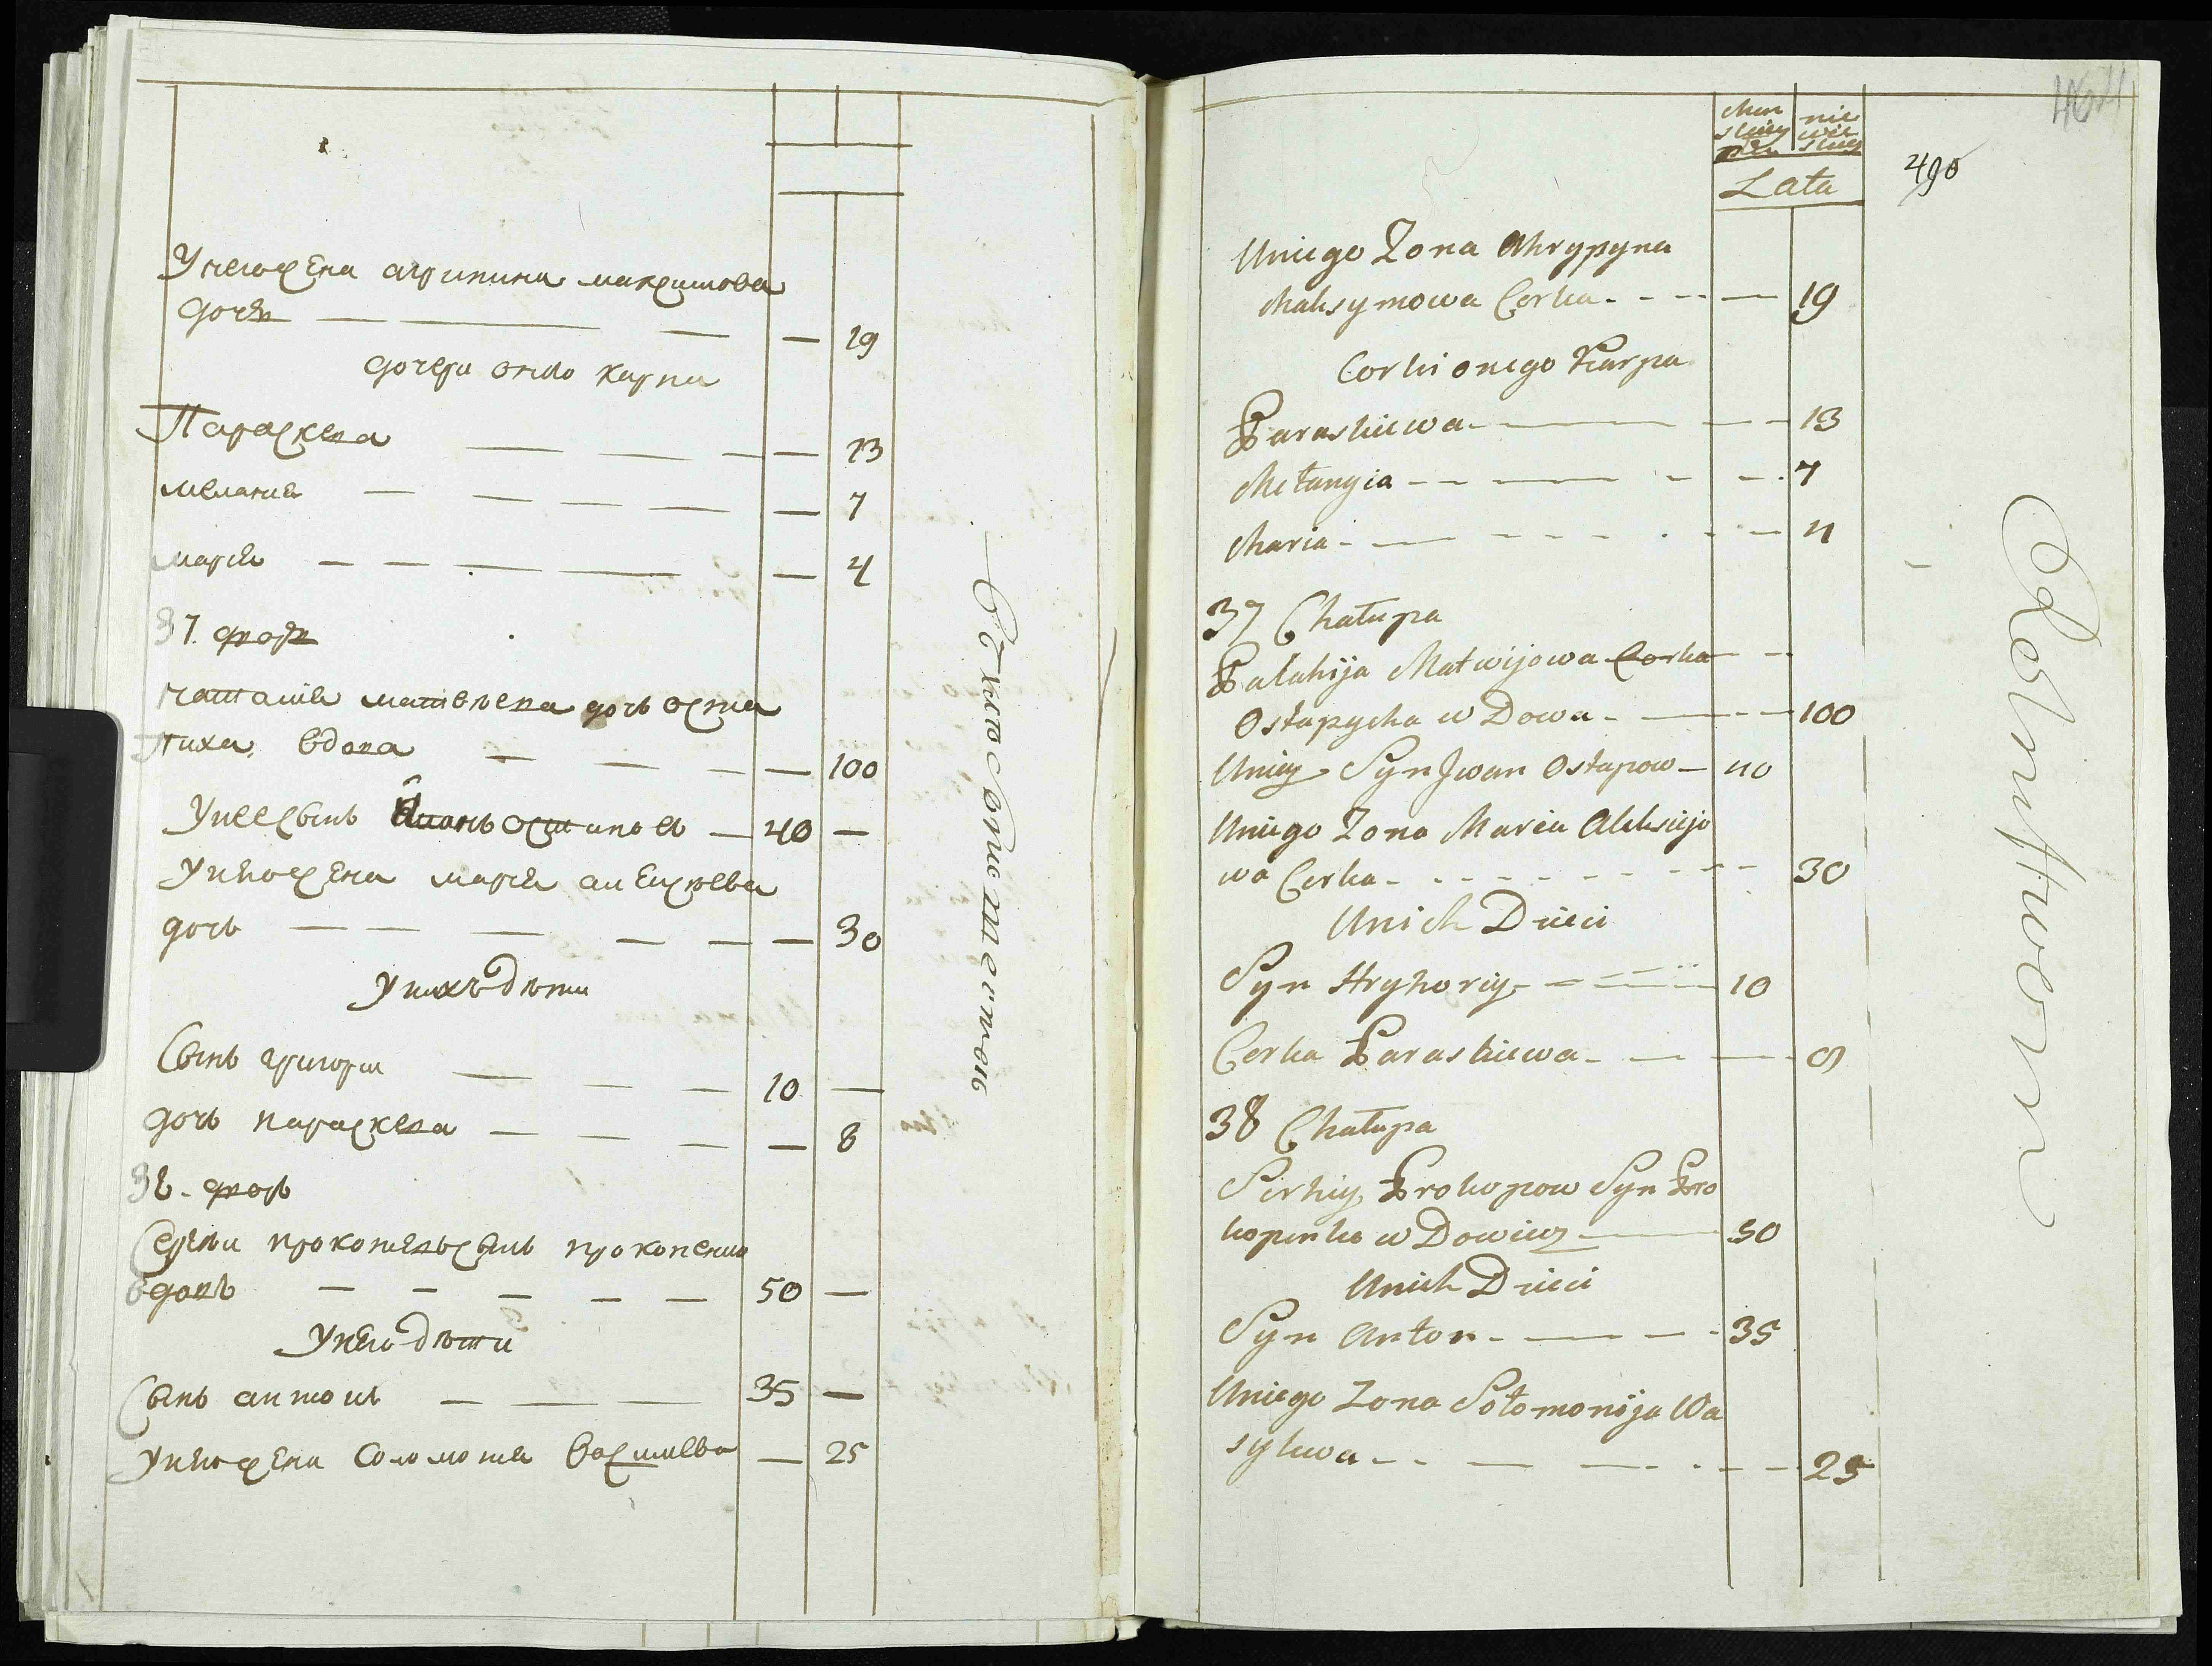 У него жена агрипина максимова
дочь — 19
дочери онаго карпа
Параскева — 13
мелания — 7
мария — 4
37. дворъ
матвеева дочь оста
пиха вдова — 100
У нее сынъ Иванъ остаповъ — 40 —
У него жена мария алексеева
дочь — 30
У нихъ дѣти
Сынъ григори — 10 —
дочь параскева — 8
38. дворъ
Сергеи прокопьевъ сынъ прокопенко
вдовъ — 50 —
У него дѣти
Сынъ антонъ — 35 —
У него жена соломония василева — 25
464
490
Lata
U niego Żona Ahrypyna
Maksymowa Corka - - - — 19
Corki onego Karpa
Paraskiewa - — 13
Mełanyia - - — 7
Maria - — 4
37 Chałupa
Pałahija Matwijowa Corka
Ostapycha w Dowa - — 100
U niey Syn Jwan Ostapow — 40
U niego Żona Maria Aleksiejo
wa Corka - - - 30
U nich Dzieci
Syn Hryhoriy - 10
Corka Paraskiewa - — 8
38 Chałupa
Serhiy Prokopow Syn Pro
kopenko w Dowiec — 50
U nich Dzieci
Syn Anton - — 35
U niego Zona Sołomonija Wa
sylewa - - — 25